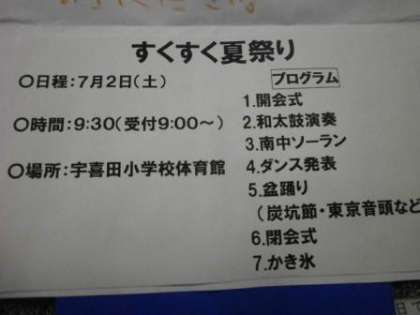 すくすく夏祭り
〇日程：7月2日(土)
〇時間：9:30(受付9:00～)
〇場所：宇喜田小学校体育館
プログラム
1.開会式
2.和太鼓演奏
3.南中ソーラン
4.ダンス発表
5.盆踊り
(炭坑節・東京音頭など
6.閉会式
7.かき氷